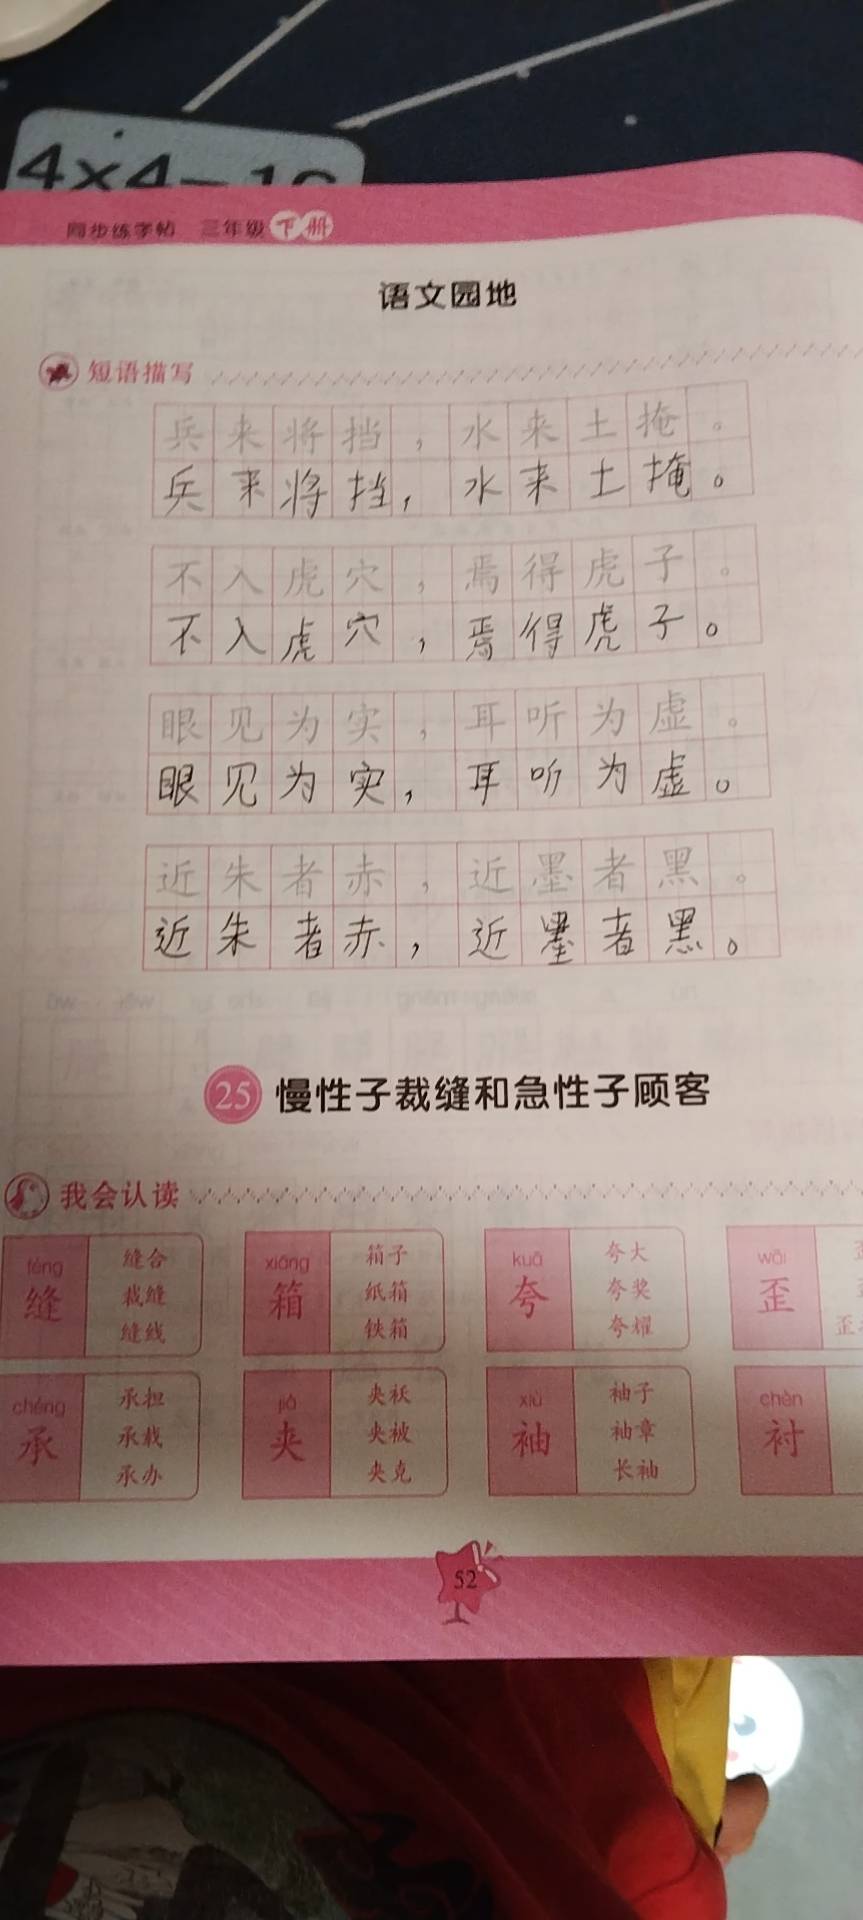 4×4=1
同步练字帖 三年级 下册
语文园地
短语描写
兵来将挡，水来土掩。
兵来将挡，水来土掩。
不入虎穴，焉得虎子。
不入虎穴，焉得虎子。
眼见为实，耳听为虚。
眼见为实，耳听为虚。
近朱者赤，近墨者黑。
近朱者赤，近墨者黑。
25 慢性子裁缝和急性子顾客
我会认读
féng 缝 缝合 裁缝 缝线
xiāng 箱 箱子 纸箱 铁箱
kuā 夸 夸大 夸奖 夸耀
wāi 歪
chéng 承 承担 承载 承办
jiá 夹 夹袄 夹被 夹克
xiù 袖 袖子 袖章 长袖
chèn 衬
52